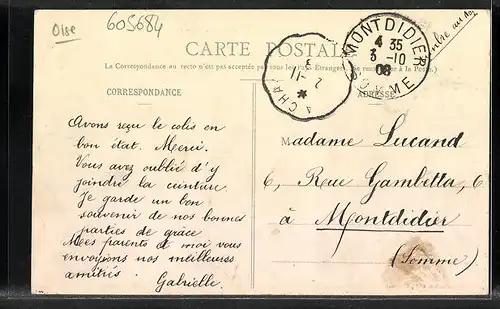 Oise
605684
CARTE POSTALE
MONTDIDIER
4 35
3 -10
08
SOMME
La Correspondance au recto n'est pas acceptée par tous les Pays Etrangers. (Se renseigner à la Poste).
CORRESPONDANCE
ADRESSE
Avons reçu le colis en
bon état. Merci.
Vous avez oublié d'y
joindre la ceinture.
Je garde un bon
souvenir de nos bonnes
parties de grâce
Mes parents et moi vous
envoyons nos meilleures
amitiés.
Gabrielle.
Madame Lucand
6, Rue Gambetta, 6
à Montdidier
(Somme)